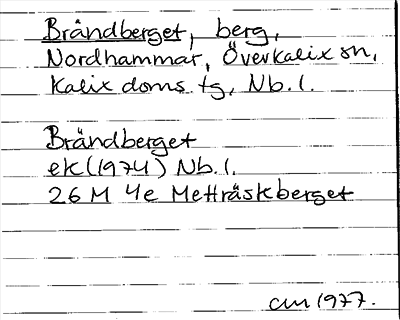 Brändberget, berg,
Nordhammar, Överkalix sn,
Kalix doms. tg, Nb. l.
Brändberget
ek (1974) Nb. l.
26 M 4e Metträskberget
am 1977.